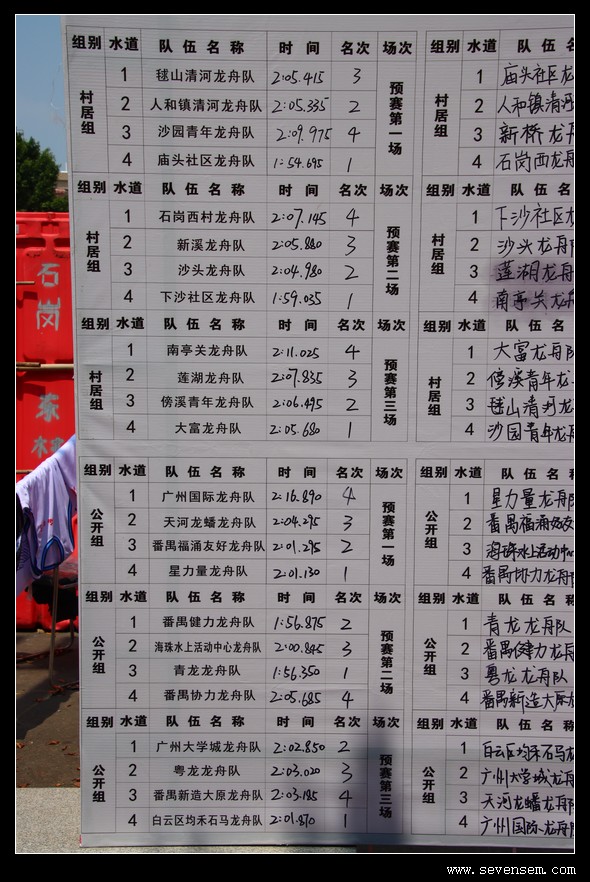 组别 水道 队伍名称 时间 名次 场次
村居组 预赛第一场
1 毬山清河龙舟队 2:05.415 3
2 人和镇清河龙舟队 2:05.335 2
3 沙园青年龙舟队 2:09.975 4
4 庙头社区龙舟队 1:54.695 1
组别 水道 队伍名称 时间 名次 场次
村居组 预赛第二场
1 石岗西村龙舟队 2:07.145 4
2 新溪龙舟队 2:05.880 3
3 沙头龙舟队 2:04.980 2
4 下沙社区龙舟队 1:59.035 1
组别 水道 队伍名称 时间 名次 场次
村居组 预赛第三场
1 南亭关龙舟队 2:11.025 4
2 莲湖龙舟队 2:07.835 3
3 傍溪青年龙舟队 2:06.495 2
4 大富龙舟队 2:05.680 1
组别 水道 队伍名称 时间 名次 场次
公开组 预赛第一场
1 广州国际龙舟队 2:16.890 4
2 天河龙蟠龙舟队 2:04.295 3
3 番禺福涌友好龙舟队 2:01.295 2
4 星力量龙舟队 2:01.130 1
组别 水道 队伍名称 时间 名次 场次
公开组 预赛第二场
1 番禺健力龙舟队 1:56.875 2
2 海珠水上活动中心龙舟队 2:00.845 3
3 青龙龙舟队 1:56.350 1
4 番禺协力龙舟队 2:05.685 4
组别 水道 队伍名称 时间 名次 场次
公开组 预赛第三场
1 广州大学城龙舟队 2:02.850 2
2 粤龙龙舟队 2:03.020 3
3 番禺新造大原龙舟队 2:03.185 4
4 白云区均禾石马龙舟队 2:01.870 1
组别 水道 队伍名
村居组
1 庙头社区龙
2 人和镇清河
3 新桥龙舟
4 石岗西龙舟
组别 水道 队伍名
村居组
1 下沙社区龙
2 沙头龙舟
3 莲湖龙舟
4 南亭关龙舟
组别 水道 队伍名
村居组
1 大富龙舟队
2 傍溪青年龙
3 毬山清河龙
4 沙园青年龙舟
组别 水道 队伍名称
公开组
1 星力量龙舟队
2 番禺福涌友好
3 海珠水上活动中心
4 番禺协力龙舟队
组别 水道 队伍名称
公开组
1 青龙龙舟队
2 番禺健力龙舟
3 粤龙龙舟队
4 番禺新造大原龙
组别 水道 队伍名称
公开组
1 白云区均禾石马龙
2 广州大学城龙舟
3 天河龙蟠龙舟队
4 广州国际龙舟队
石岗
www.sevensem.com